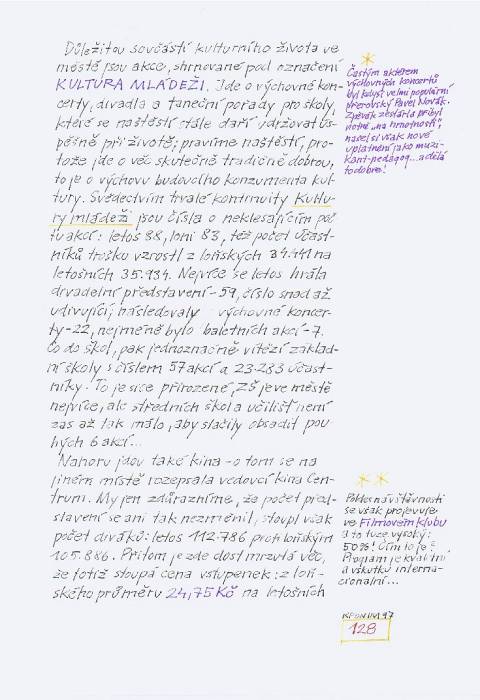 Důležitou součástí kulturního života ve
městě jsou akce, shrnované pod označení
KULTURA MLÁDEŽI. Jde o výchovné kon-
certy, divadla a taneční pořady pro školy,
které se naštěstí stále daří udržovat ús-
pěšně při životě; pravíme naštěstí, pro-
tože jde o věc skutečně tradičně dobrou,
to je o výchovu budoucího konzumenta kul-
tury. Svědectvím trvalé kontinuity Kultu-
ry mládeži jsou čísla o neklesajícím poč
tu akcí: letos 88, loni 83, též počet účast-
níků trošku vzrostl z loňských 34.441 na
letošních 35.934. Nejvíce se letos hrála
divadelní představení - 59, číslo snad až
udivující; následovaly výchovné koncer-
ty - 22, nejméně bylo baletních akcí - 7.
Co do škol, pak jednoznačně vítězí základ-
ní školy s číslem 57 akcí a 23.283 účast-
níky. To je sice přirozené, ZŠ je ve městě
nejvíce, ale středních škol a učilišť není
zas až tak málo, aby stačily obsadit pou
hých 6 akcí...
Nahoru jdou také kina - o tom se na
jiném místě rozepsala vedoucí kina Cen-
trum. My jen zdůrazníme, že počet před-
stavení se ani tak nezměnil, stoupl však
počet diváků: letos 112.786 proti loňským
105.886. Přitom je zde dost mrzutá věc,
že totiž stoupá cena vstupenek: z loň-
ského průměru 24,75 Kč na letošních
Častým aktérem
výchovných koncertů
byl kdysi velmi populární
přerovský Pavel Novák.
Zpěvák zestárl a přibyl
notně „na hmotnosti",
našel si však nové
uplatnění jako muzi-
kant-pedagog... a dělá
to dobře!
Pokles návštěvnosti
se však projevuje
ve Filmovém klubu
a to tuze vysoký:
50%! Čím to je?
Program je kvalitní
a vskutku interna-
cionální...
KRONIKA 97
128